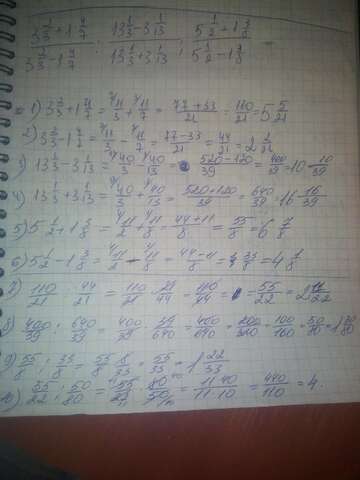 (3 2/3 + 1 4/7)/(3 2/3 - 1 4/7) : (13 1/3 - 3 1/13)/(13 1/3 + 3 1/13) : (5 1/2 + 1 3/8)/(5 1/2 - 1 3/8) =
= 1) 3 2/3 + 1 4/7 = 11/3 + 11/7 = (77+33)/21 = 110/21 = 5 5/21
2) 3 2/3 - 1 4/7 = 11/3 - 11/7 = (77-33)/21 = 44/21 = 2 2/21
3) 13 1/3 - 3 1/13 = 40/3 - 40/13 = (520-120)/39 = 400/39 = 10 10/39
4) 13 1/3 + 3 1/13 = 40/3 + 40/13 = (520+120)/39 = 640/39 = 16 16/39
5) 5 1/2 + 1 3/8 = 11/2 + 11/8 = (44+11)/8 = 55/8 = 6 7/8
6) 5 1/2 - 1 3/8 = 11/2 - 11/8 = (44-11)/8 = 33/8 = 4 7/8
7) 110/21 : 44/21 = 110/21 · 21/44 = 110/44 = 55/22 =
8) 400/39 : 640/39 = 400/39 · 39/640 = 400/640 = 200/320 = 100/160 = 50/80
9) 55/8 : 33/8 = 55/8 · 8/33 = 55/33 = 1 22/33
10) 55/22 : 50/80 = 55/22 · 80/50 = (11·40)/(11·10) = 440/110 = 4.